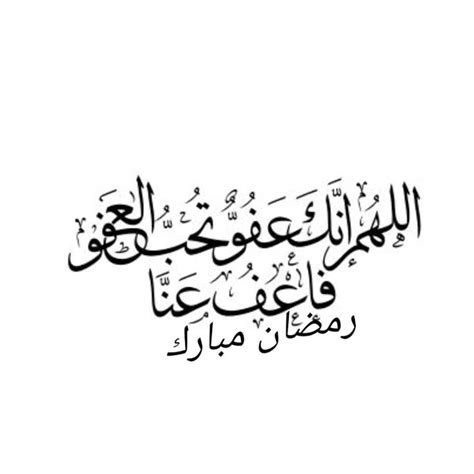 اللهم انك عفو تحب العفو
فاعف عنا
رمضان مبارك